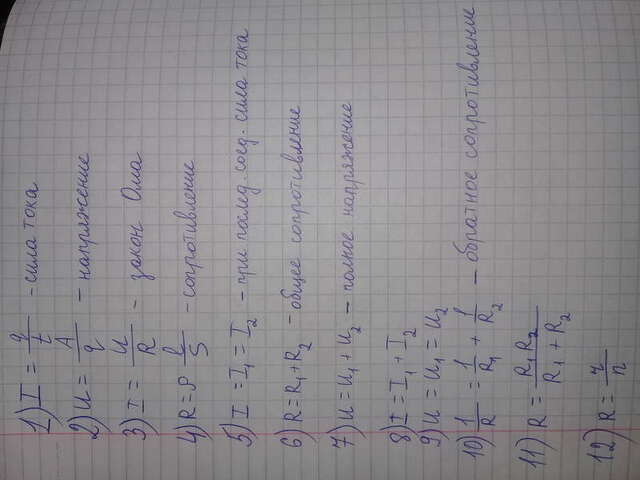 1) I = q/t - сила тока
2) U = A/q - напряжение
3) I = U/R - закон Ома
4) R = ρ l/S - сопротивление
5) I = I₁ = I₂ - при послед. соед. сила тока
6) R = R₁ + R₂ - общее сопротивление
7) U = U₁ + U₂ - полное напряжение
8) I = I₁ + I₂
9) U = U₁ = U₂
10) 1/R = 1/R₁ + 1/R₂ - обратное сопротивление
11) R = R₁R₂/(R₁ + R₂)
12) R = r/n